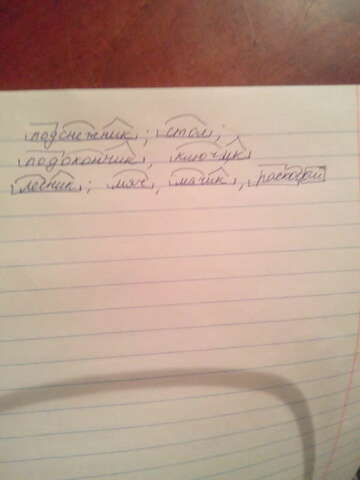 подснежник; стол;
подоконник, ключик
лесник; мяч, мачик,